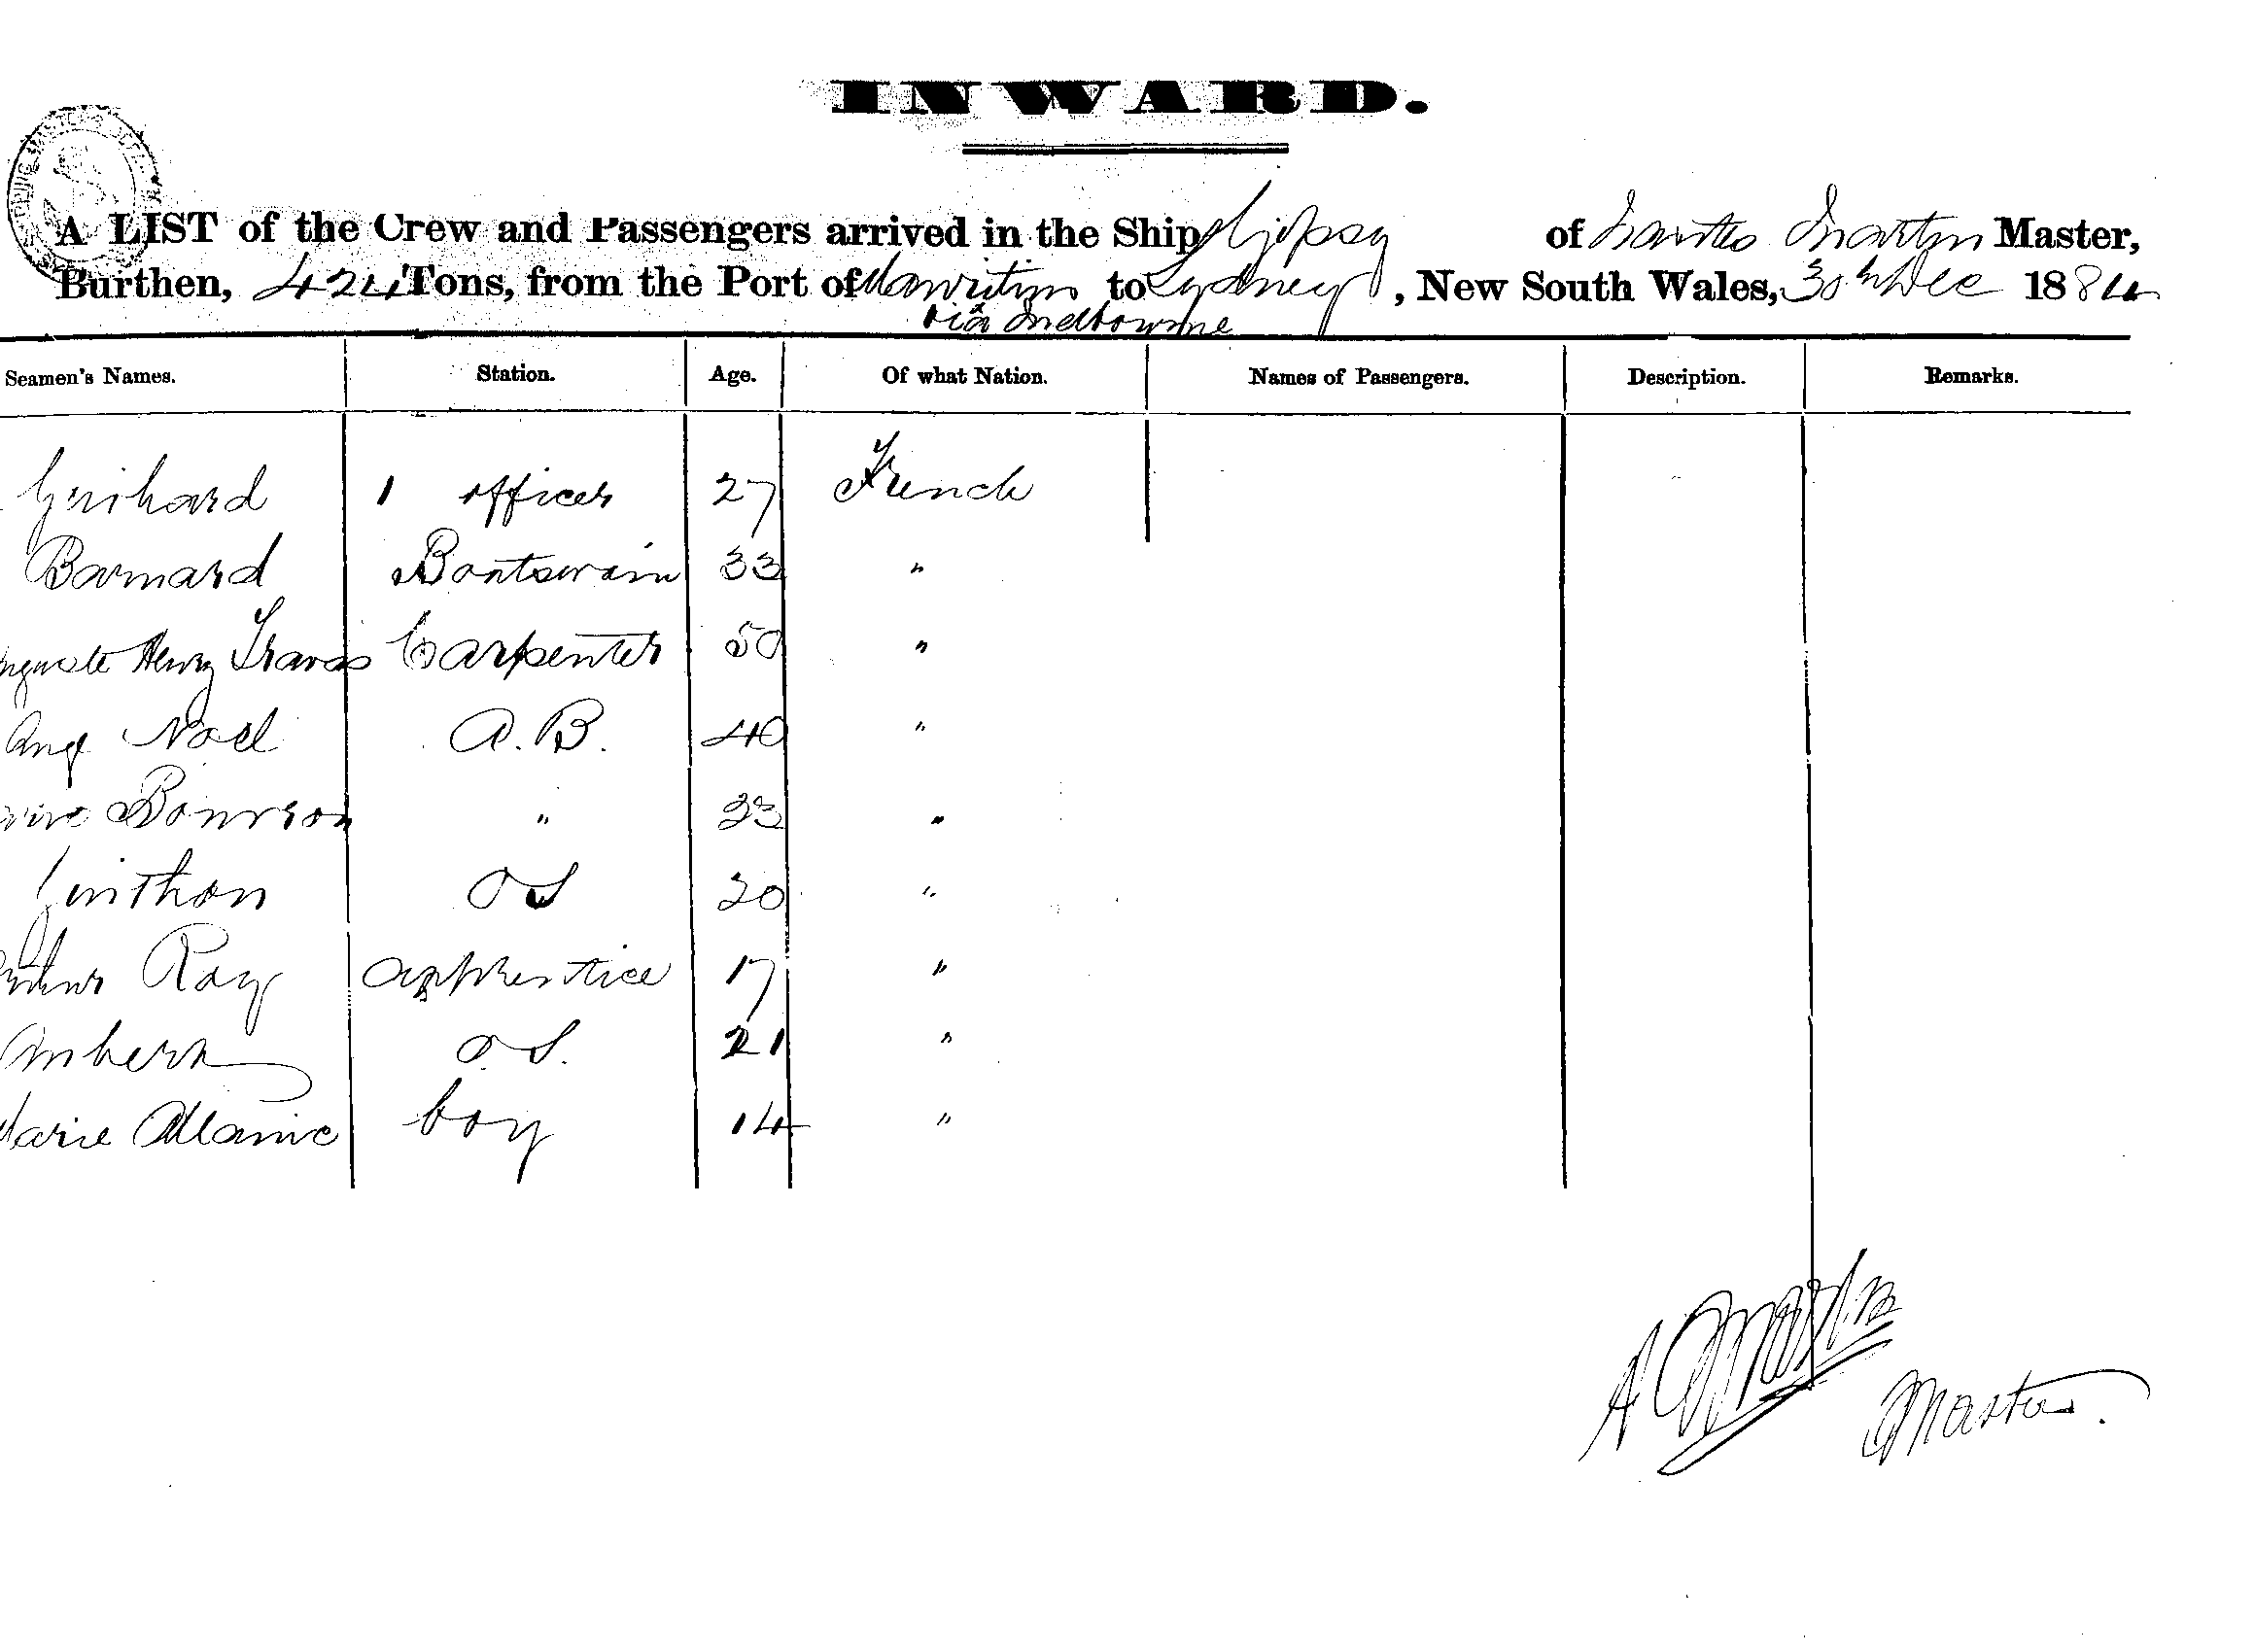 INWARD.
A LIST of the Crew and Passengers arrived in the Ship Gipsy of Nantes Martin Master,
Burthen, 424 Tons, from the Port of Mauritius to Sydney, New South Wales, 30th Dec 1884
via Melbourne
Seamen's Names. Station. Age. Of what Nation. Names of Passengers. Description. Remarks.
Guihard 1 officer 27 French
Barnard Boatswain 33 "
Henry Carpenter 50 "
Ange Noel A.B. 40 "
" 23 "
Guithon OS 20 "
Ray apprentice 17 "
O.S. 21 "
Marie boy 14 "
A Martin
Master.